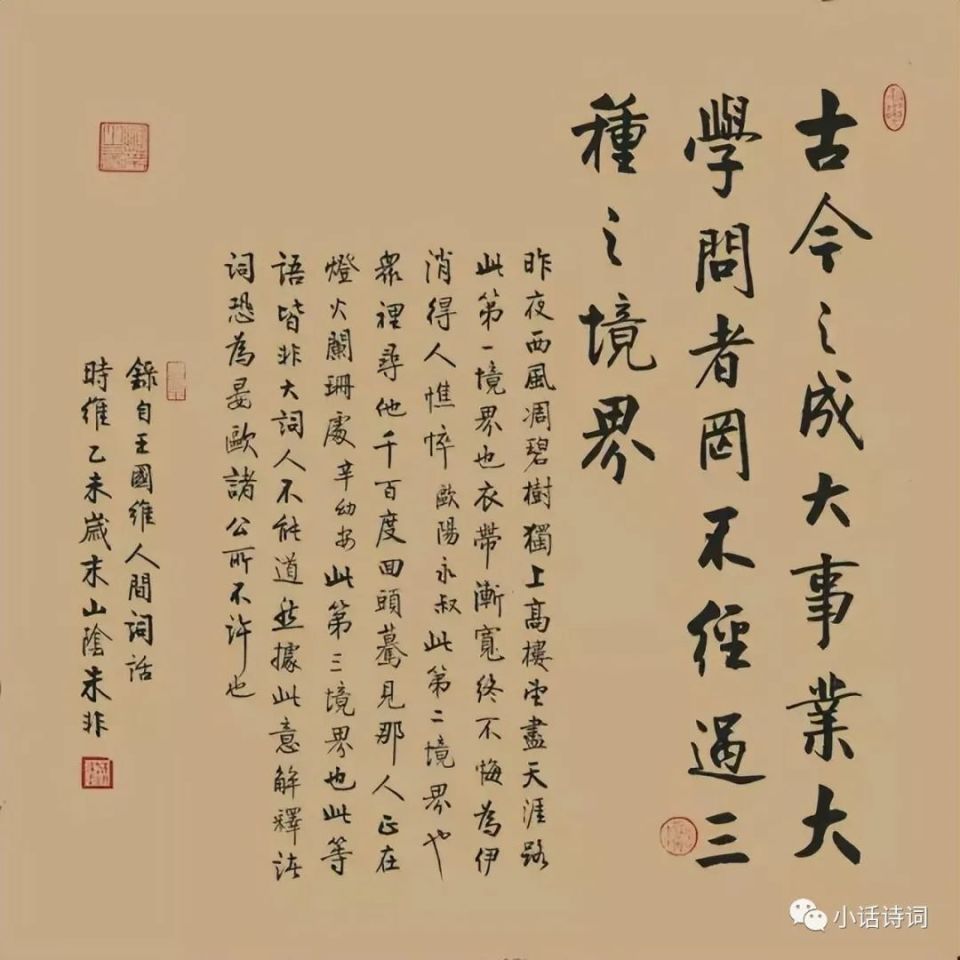 古今之成大事業大
學問者罔不經過三
種之境界
昨夜西風凋碧樹獨上高樓望盡天涯路
此第一境界也衣帶漸寬終不悔為伊
消得人憔悴歐陽永叔此第二境界也
眾裡尋他千百度回頭驀見那人正在
燈火闌珊處辛幼安此第三境界也此等
語皆非大詞人不能道然據此意解釋諸
詞恐為晏歐諸公所不許也
錄自王國維人間詞話
時維乙未歲末山陰朱非
小话诗词